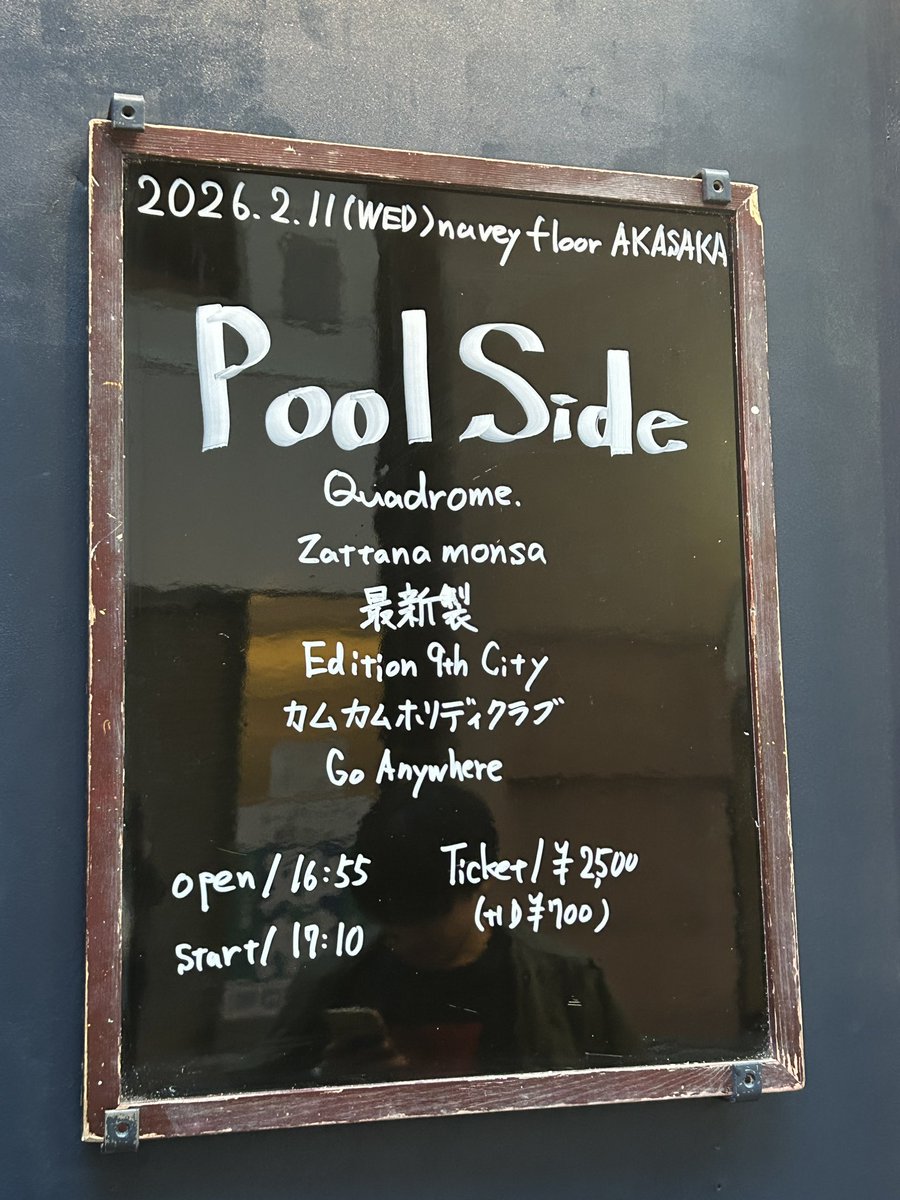 2026.2.11(WED)navey floor AKASAKA
Pool Side
Quadrome.
Zattana monsa
最新製
Edition 9th City
カムカムホリディクラブ
Go Anywhere
open/16:55
Ticket/¥2,500
(+1D¥700)
start/17:10